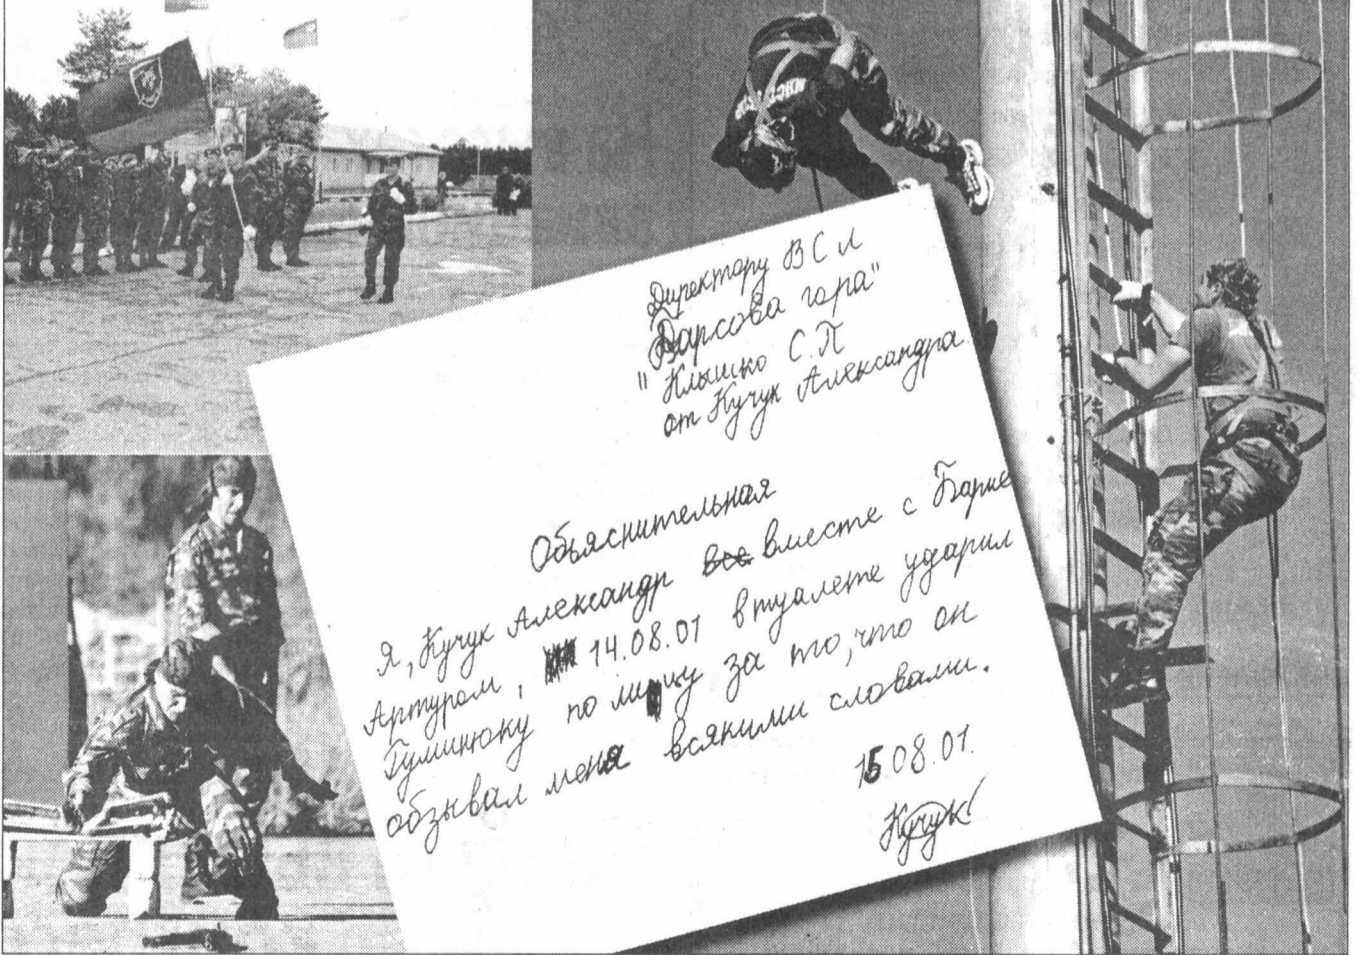 Директору ВСЛ
„Барсова гора"
Клышко С.П
от Кучук Александра.
Объяснительная
Я, Кучук Александр все вместе с
Артуром, 14.08.01 в туалете ударил
Гуминюку по лицу за то, что он
обзывал меня всякими словами.
15.08.01.
Кучук